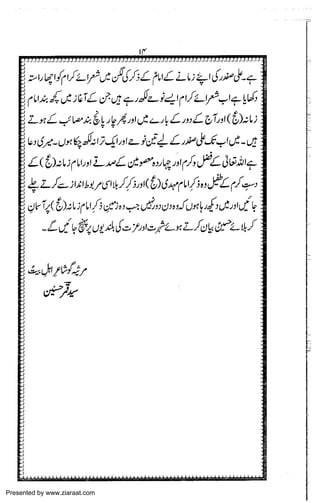 ۱۴
ہے۔ علی صفدر کی اپنے زمانے کے امام کے ذکر کی لگن میں شعرائے کرام کو اچھا راستہ
دکھایا ہے اب شعرائے کرام ایسے نوحے لکھ رہے ہیں جن کے آغاز میں کچھ بند امام
زمانہ (عج) اور آج کے دور کے بارے میں اور پھر چار پانچ بند مصائب کے ہوتے
ہیں۔ میں اب تک علی صفدر کے لیے تین نوحے اور ایک ترانہ لکھ چکا ہوں۔ میری دعا
ہے اللہ تعالیٰ کے فضل و کرم اور چہاردہ معصومین کے صدقے اور امام زمانہ (عج) کے
کے طفیل وہ ذکر امام مہدی (عج) اور ذکر کربلا اسی مربوط انداز سے کرتے چلے
جائیں اور میں دیکھ رہا ہوں کہ وہ دن دور نہیں جب وہ زمین ذکر امام زمانہ (عج) پر آسمان
کربلائے حسینؑ بیان کرتے ہوئے شہرت اور عزت کی بلندیوں پر پہنچ جائیں گے۔
مرثیہ گو شاعر اہل بیتؑ
سید قمر حسنین
Presented by www.ziaraat.com